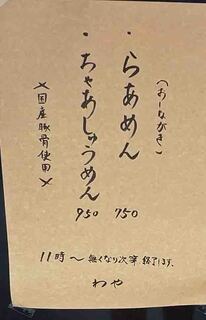 （おーながき）
・らあめん 750
・ちゃあしゅうめん 950
×国産豚骨使用×
11時〜無くなり次第終了します。
わや